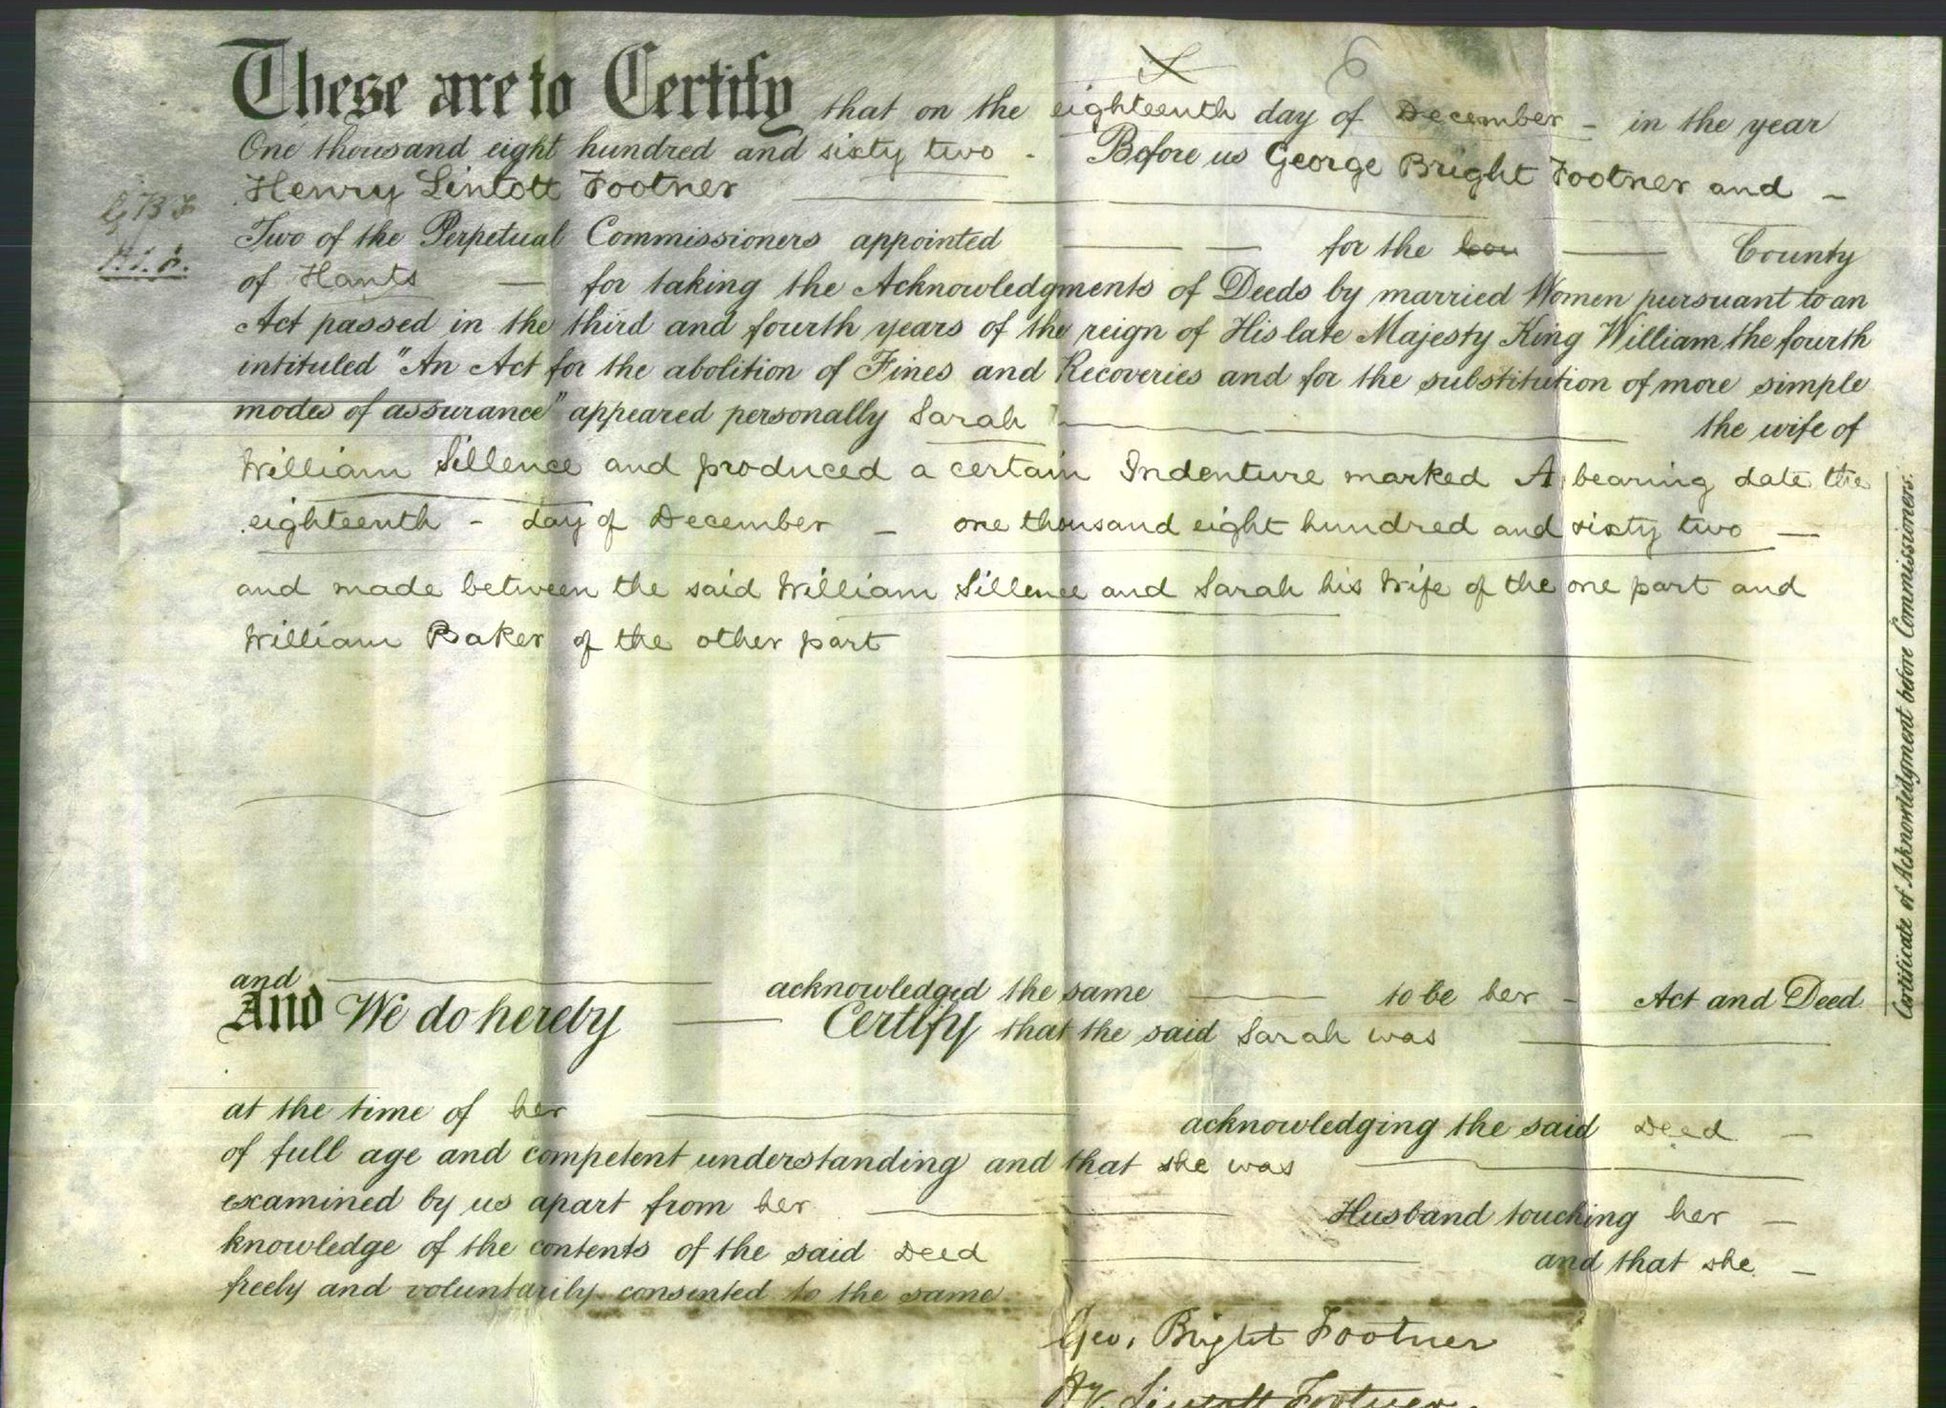 These are to Certify that on the eighteenth day of December - in the year
One thousand eight hundred and sixty two - Before us George Bright Footner and -
Henry Lintott Footner
G B F
H. L. F.
Two of the Perpetual Commissioners appointed for the County
of Hants — for taking the Acknowledgments of Deeds by married Women pursuant to an
Act passed in the third and fourth years of the reign of His late Majesty King William the fourth
intituled "An Act for the abolition of Fines and Recoveries and for the substitution of more simple
modes of assurance" appeared personally Sarah the wife of
William Sillence and produced a certain Indenture marked A bearing date the
eighteenth - day of December - one thousand eight hundred and sixty two —
and made between the said William Sillence and Sarah his Wife of the one part and
William Baker of the other part
and acknowledged the same to be her - Act and Deed
And We do hereby Certify that the said Sarah was
at the time of her acknowledging the said Deed -
of full age and competent understanding and that she was
examined by us apart from her Husband touching her -
knowledge of the contents of the said Deed and that she -
freely and voluntarily consented to the same
Geo. Bright Footner
Hy Lintott Footner
Certificate of Acknowledgment before Commissioners.